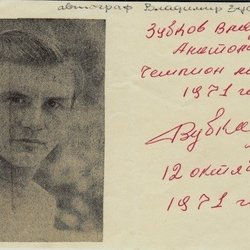 автограф Владимир Зуб
Зубков Вла
Анатол
Чемпион м
1971 г
Зубков
12 октя
1971 г